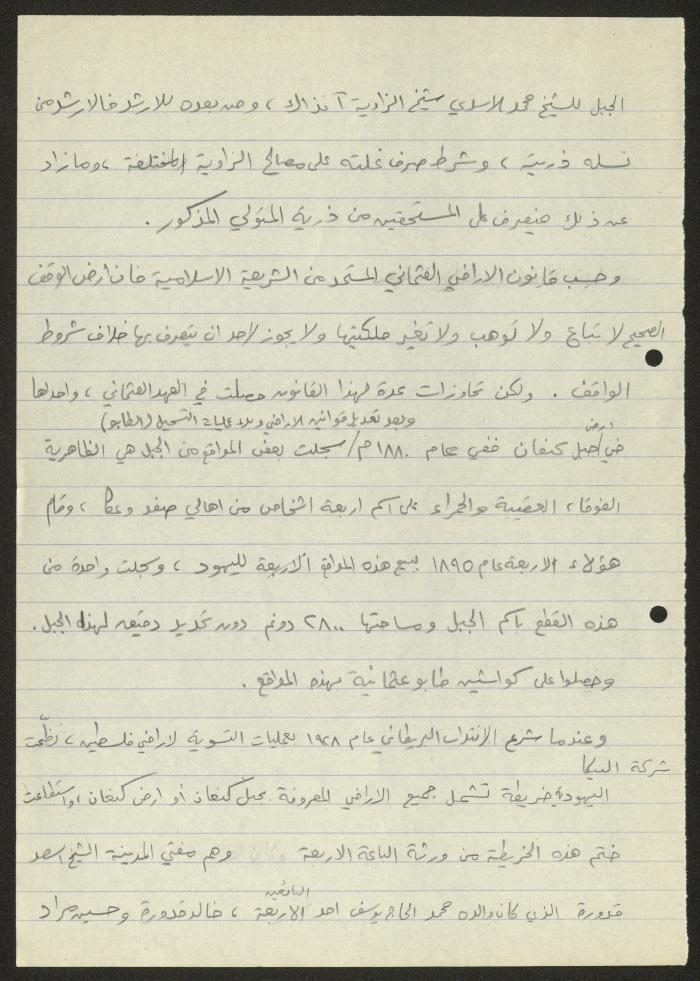 الجبل للشيخ محمد الاسدي شيخ الزاوية آنذاك ، ومن بعده للارشد فالارشد من
نسله ذريته ، وشرط صرف غلته على مصالح الزاوية المختلفة ، ومازاد
عن ذلك فيصرف على المستحقين من ذرية المتولي المذكور .
وحسب قانون الاراضي العثماني المستمد من الشريعة الاسلامية فان ارض الوقف
الصحيح لا تباع ولا توهب ولا تغير ملكيتها ولا يجوز لاحد ان يتصرف بها خلاف شروط
الواقف . ولكن تجاوزات عدة لهذا القانون حصلت في العهد العثماني ، واحداها
وبعد تعديل قوانين الاراضي وبدء عمليات التسجيل (الطابو)
ارض
في جبل كنعان ففي عام ١٨٨٠م/ سجلت بعض المواقع من الجبل هي الظاهرية
الفوقا، العقيبة والحمراء على اسم اربعة اشخاص من اهالي صفد وعكا ، وقام
هؤلاء الاربعة عام ١٨٩٥ ببيع هذه المواقع الاربعة لليهود ، وسجلت واحدة من
هذه القطع باسم الجبل ومساحتها ٢٨٠٠ دونم دون تحديد دقيق لهذا الجبل .
وحصلوا على كواشين طابو عثمانية بهذه المواقع .
وعندما شرع الانتداب البريطاني عام ١٩٢٨ بعمليات التسوية لاراضي فلسطين ، نظّمت
شركة البيكا
اليهودية خريطة تشمل جميع الاراضي المعروفة بجبل كنعان أو ارض كنعان ، واستطاعت
ختم هذه الخريطة من ورثة الباعة الاربعة وهم مفتي المدينة الشيخ اسعد
البائعين
قدورة الذي كان والده محمد الحاج يوسف احد الاربعة ، خالد قدورة وحسين مراد